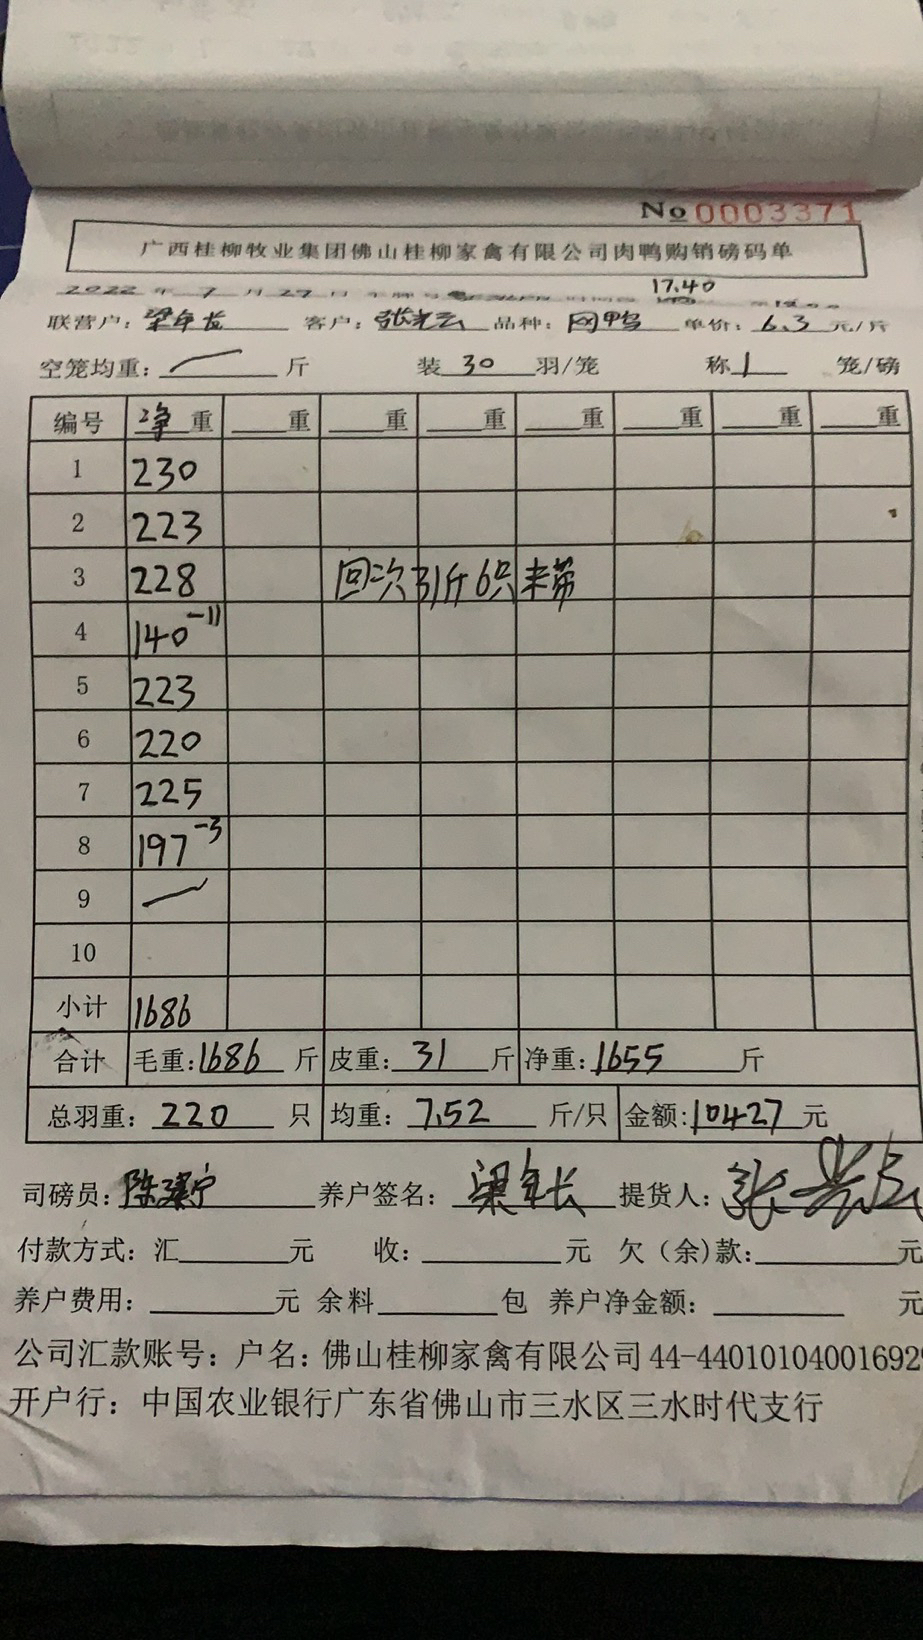 No 0003371
广西桂柳牧业集团佛山桂柳家禽有限公司肉鸭购销磅码单
2022 年 7 月 27 日 17.40
联营户: 梁年长 客户: 张光云 品种: 网鸭 单价: 6.3 元/斤
空笼均重: 斤 装 30 羽/笼 称 1 笼/磅
编号 净 重 重 重 重 重 重 重 重
1 230
2 223
3 228 回次31斤6只未带
4 140 -11
5 223
6 220
7 225
8 197 -3
9 —
10
小计 1686
合计 毛重: 1686 斤 皮重: 31 斤 净重: 1655 斤
总羽重: 220 只 均重: 7.52 斤/只 金额: 10427 元
司磅员: 养户签名: 梁年长 提货人: 张
付款方式: 汇 元 收: 元 欠(余)款: 元
养户费用: 元 余料 包 养户净金额: 元
公司汇款账号: 户名: 佛山桂柳家禽有限公司 44-44010104001692
开户行: 中国农业银行广东省佛山市三水区三水时代支行